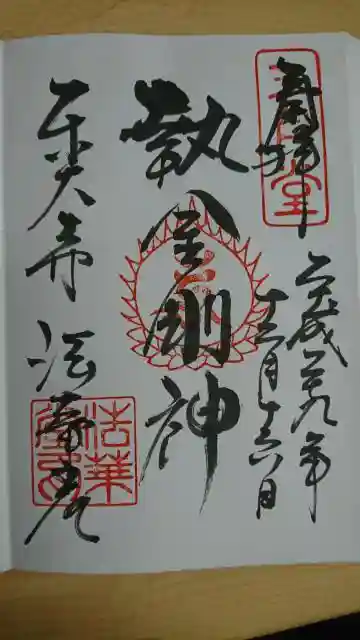 奉拝
平成二九年
十二月十六日
執金剛神
東大寺 法華堂
法華